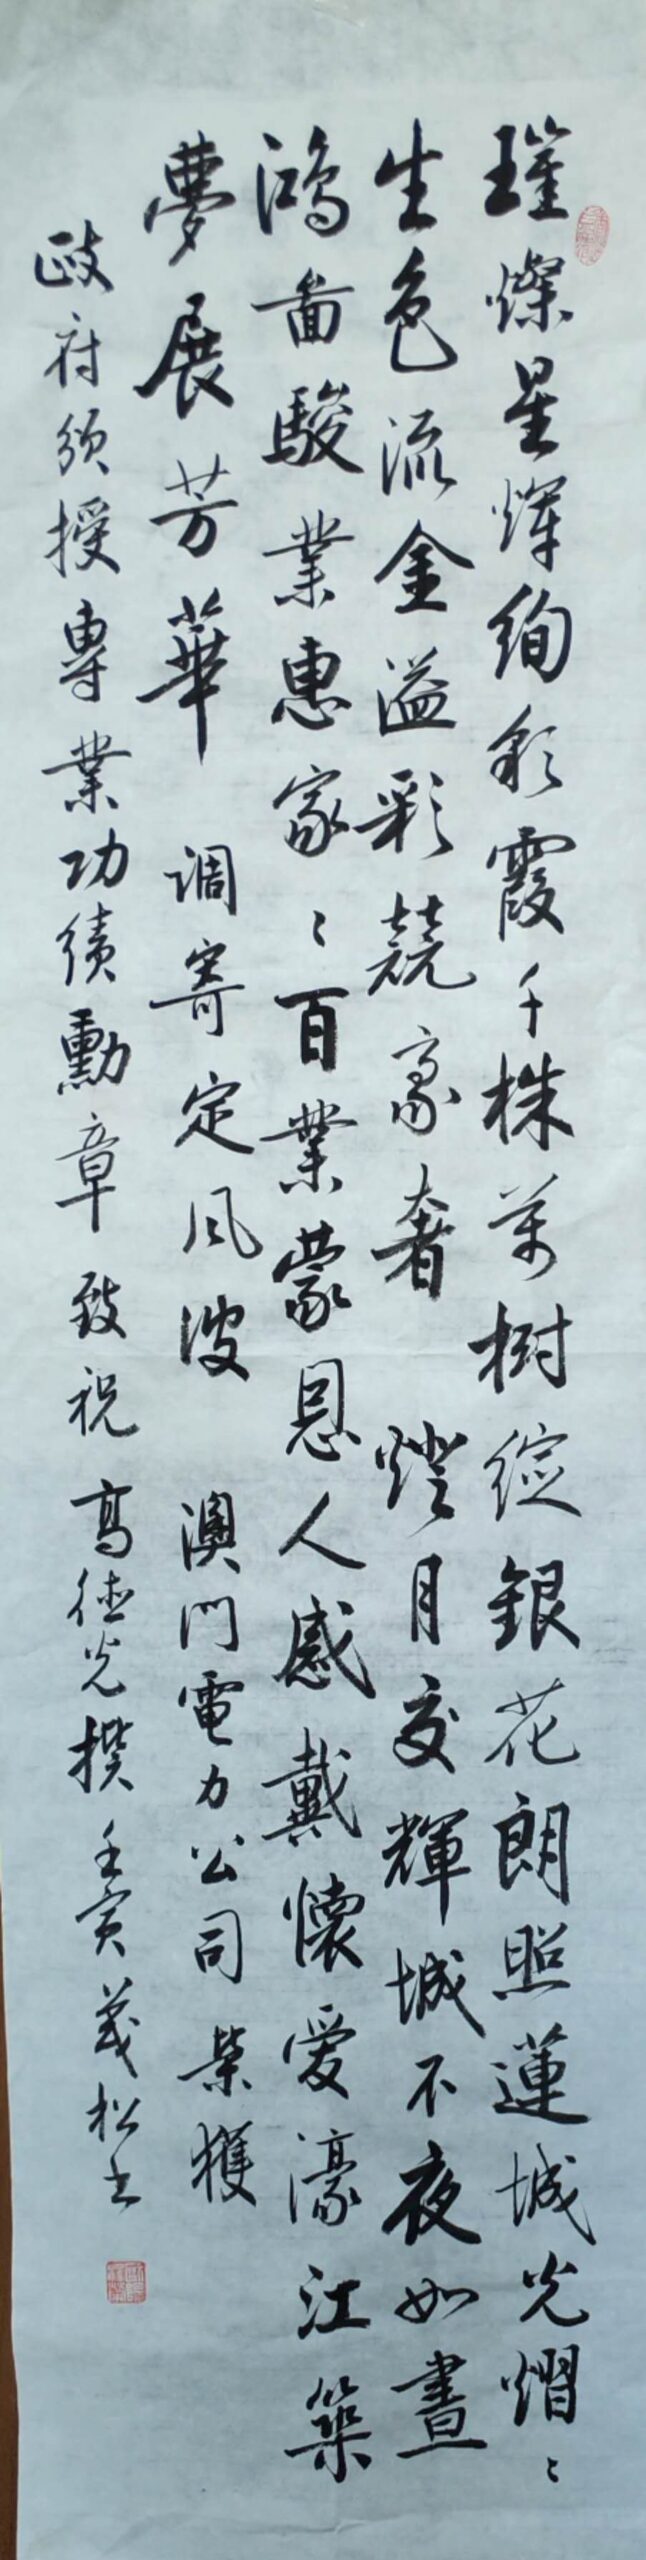 璀燦星輝絢彩霞千株萬樹綻銀花朗照蓮城光熠〻
生色流金溢彩競豪奢 燈月交輝城不夜如晝
鴻圖駿業惠家〻百業蒙恩人感戴懷愛濠江築
夢展芳華 调寄定风波 澳门電力公司 榮獲
政府頒授專業功績勳章 致祝 高德光撰 壬寅 義松书